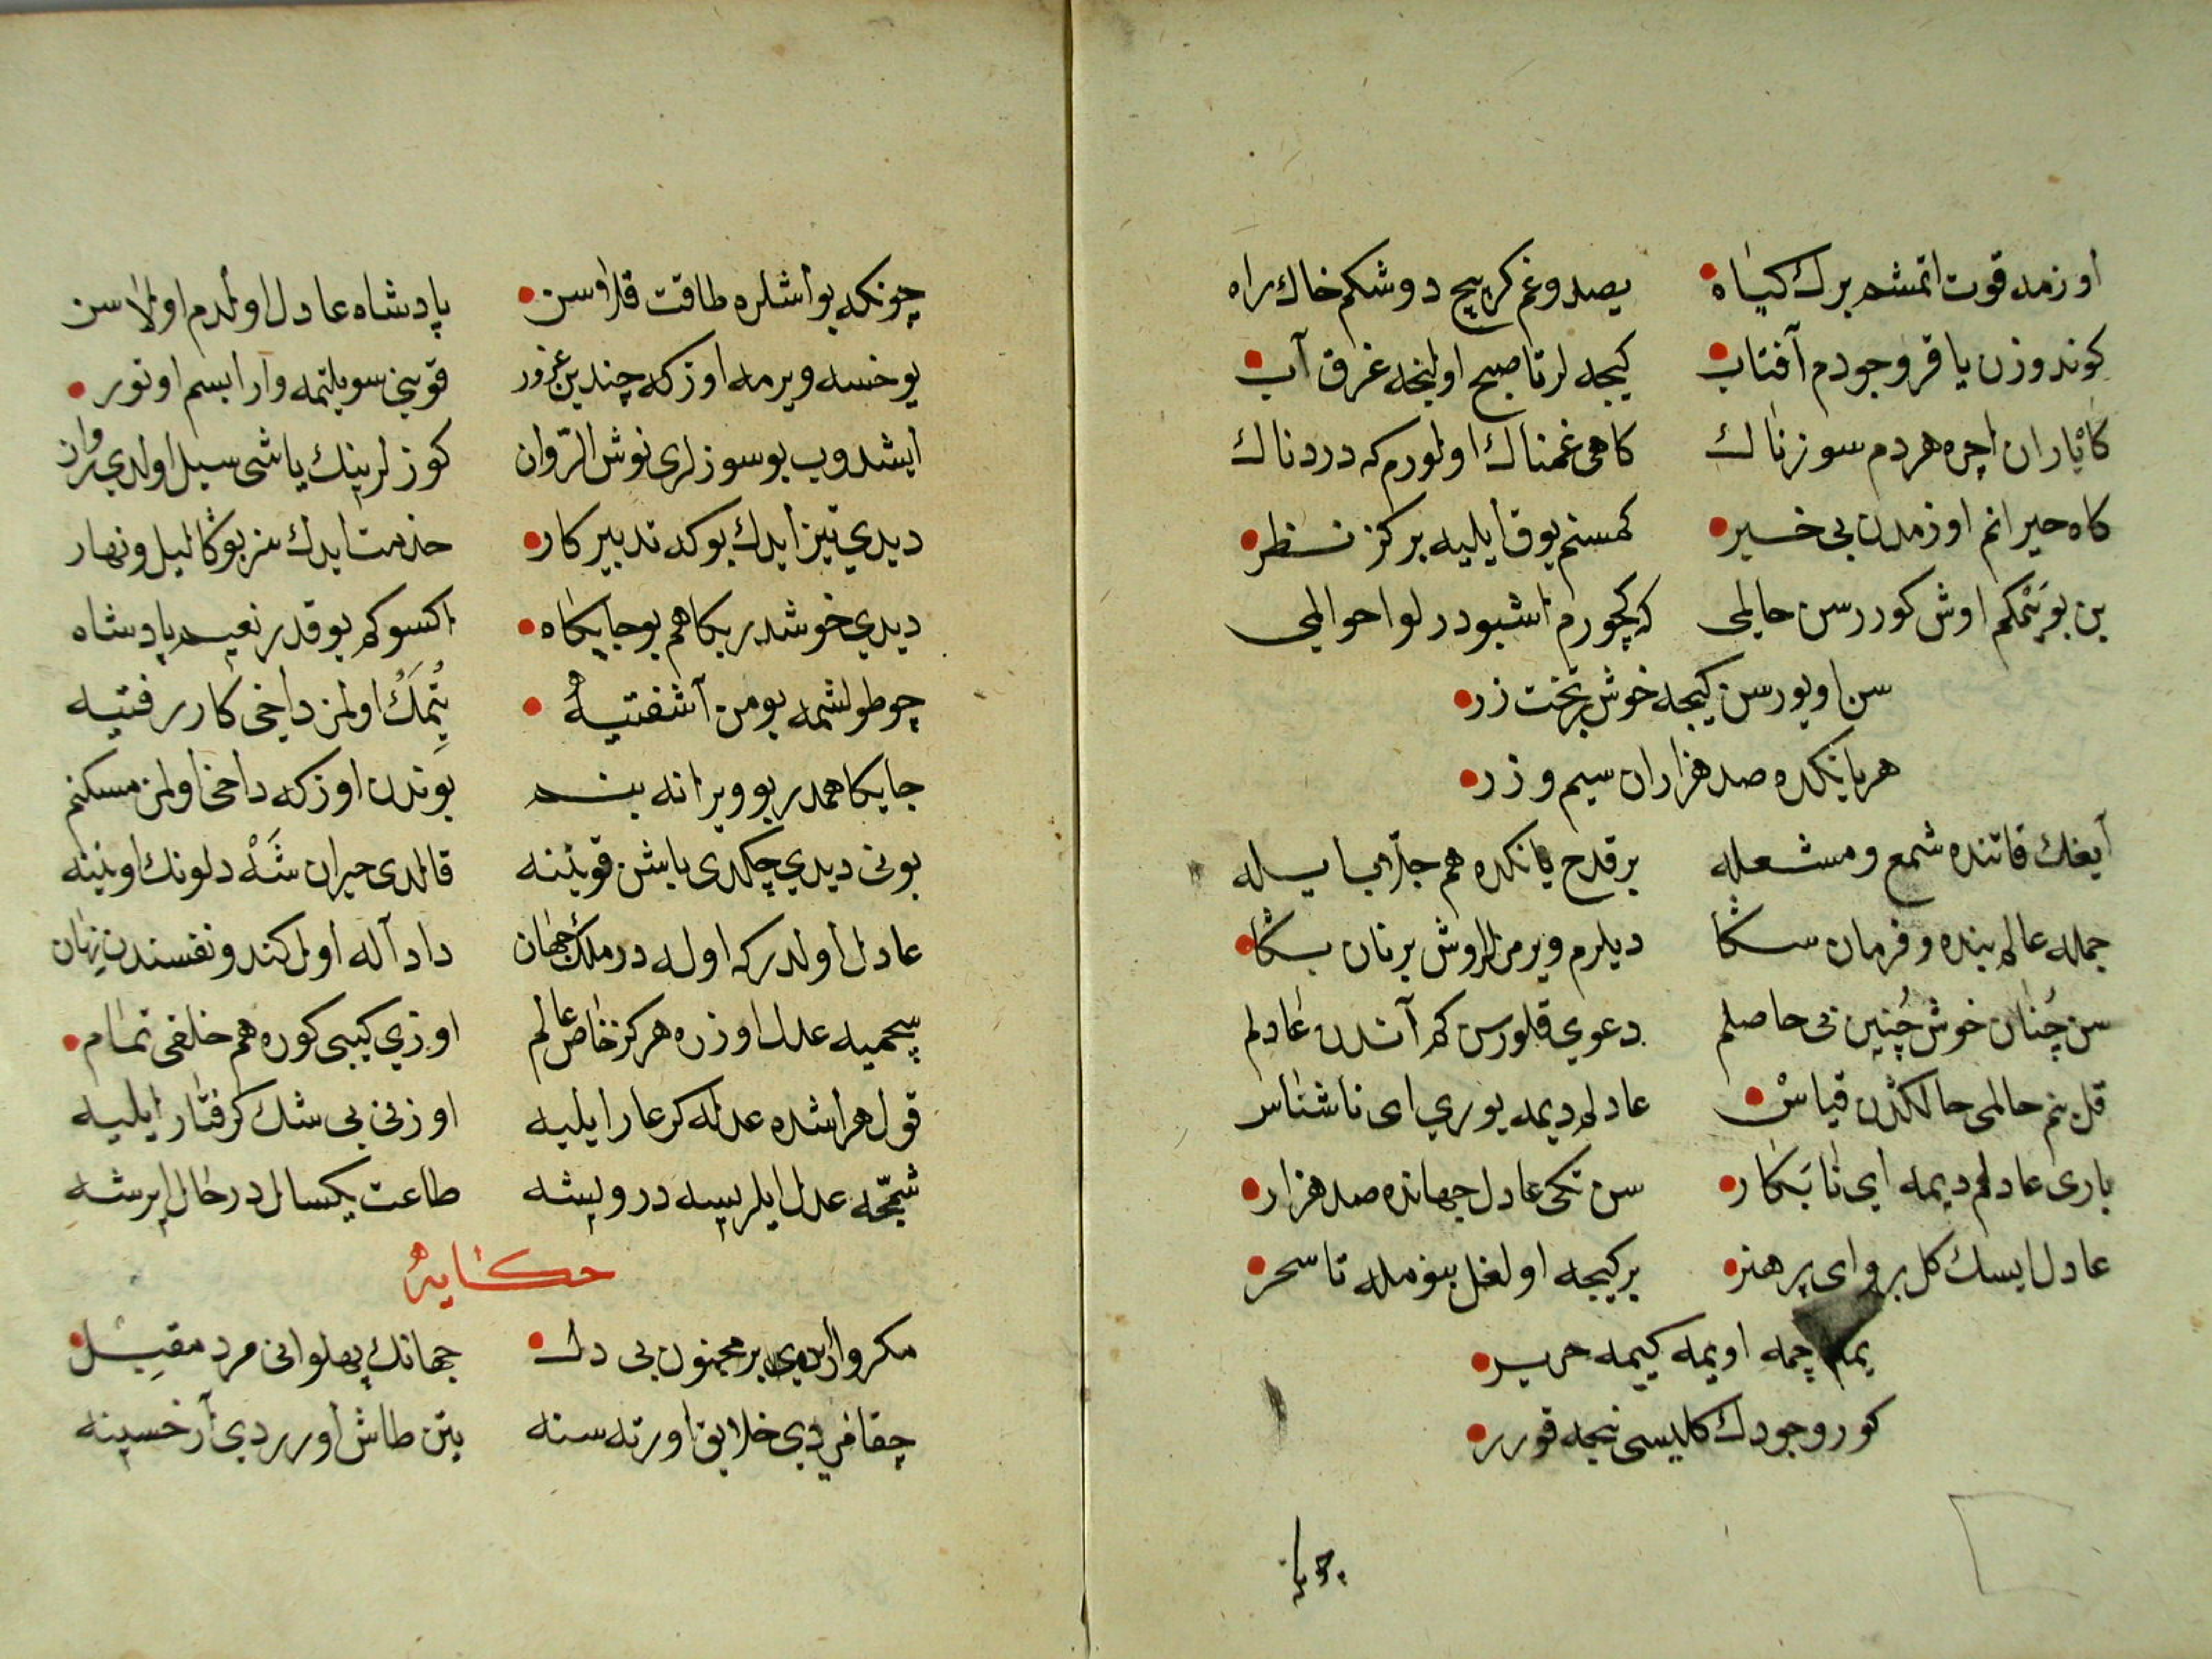 اوزمه قوت اتمشم برك كياه يصدوغم كرپيج دوشكم خاك راه
كوندوزن ياقر وجودم آفتاب كيجه لر تا صبح اولنجه غرق آب
كاه ياران اچره هردم سوزناك كاهى غمناك اولورم كه دردناك
كاه حيرانم اوزمدن بى خبر كمسنم يوق ايليه بر كز نظر
بن بو رسمكم اوش كوررسن حالمى كه كچورم اشبو درلو احوالمى
سن اويورسن كيجه خوش بر تخت زر
هر يانكده صد هزاران سيم و زر
آيغك قاتنده شمع و مشعله بر قدح يانكده هم جلّاب ايله
جمله عالم بنده و فرمان سكا ديلرم ويرمزلر اوش بر نان بكا
سن چنان خوش چنين بى حاصلم دعوي قلورسن كم آندن عادلم
قل بنم حالمى حالكدن قياس عادلم ديمه يوري اى ناشناس
بارى عادلم ديمه اي نابكار سن تكى عادل جهانده صد هزار
عادل ايسك كل برو اى پر هنر بر كيجه اولغل بنومله تا سحر
يمه اچمه اويمه كييمه حرير
كور وجودك كليسى نيجه قورر
چونكه بو اشلره طاقت قلاوسن پادشاه عادل اولدم اولاسن
يوخسه ويرمه اوزكه چندين غرور قو بنى سويلتمه وار ابسم اوتور
ايشدوب بو سوزلرى نوش الرّوان كوزلرينك ياشى سيل اولدي روان
ديدي تيز ايدك بوكه تدبير كار خدمت ايدك سز بوكا ليل و نهار
ديدي خوشدر بكا هم بو جايكاه اكسوكم بو قدر نعيم پادشاه
چو طولشمه بو من آشفتيه يتمك اولمز داخى كار رفتيه
جايكاهمدر بو ويرانه بنم بوندن اوزكه داخى اولمز مسكنم
بونى ديدي چكدى باشن قوينه قالدى حيران شه دلونك اوينه
عادل اولدركه اوله در ملك جهان داد آله اول كندو نفسندن
چيميه عدل اوزره هركز خاص عالم اوزي كيبى كوره هم خلقى تمام
قول هر اشده عدله كر عار ايليه اوزنى بى شك كرفتار ايليه
شمّه عدل ايلريسه درويشه طاعت يكسال در حال ايرشه
حكايه
مكر واردى بر مجنون بى دل جهانك پهلوانى مرد مقبل
چقامردي خلايق اورته سنه بتن طاش اورردي آرخسينه
چونكه